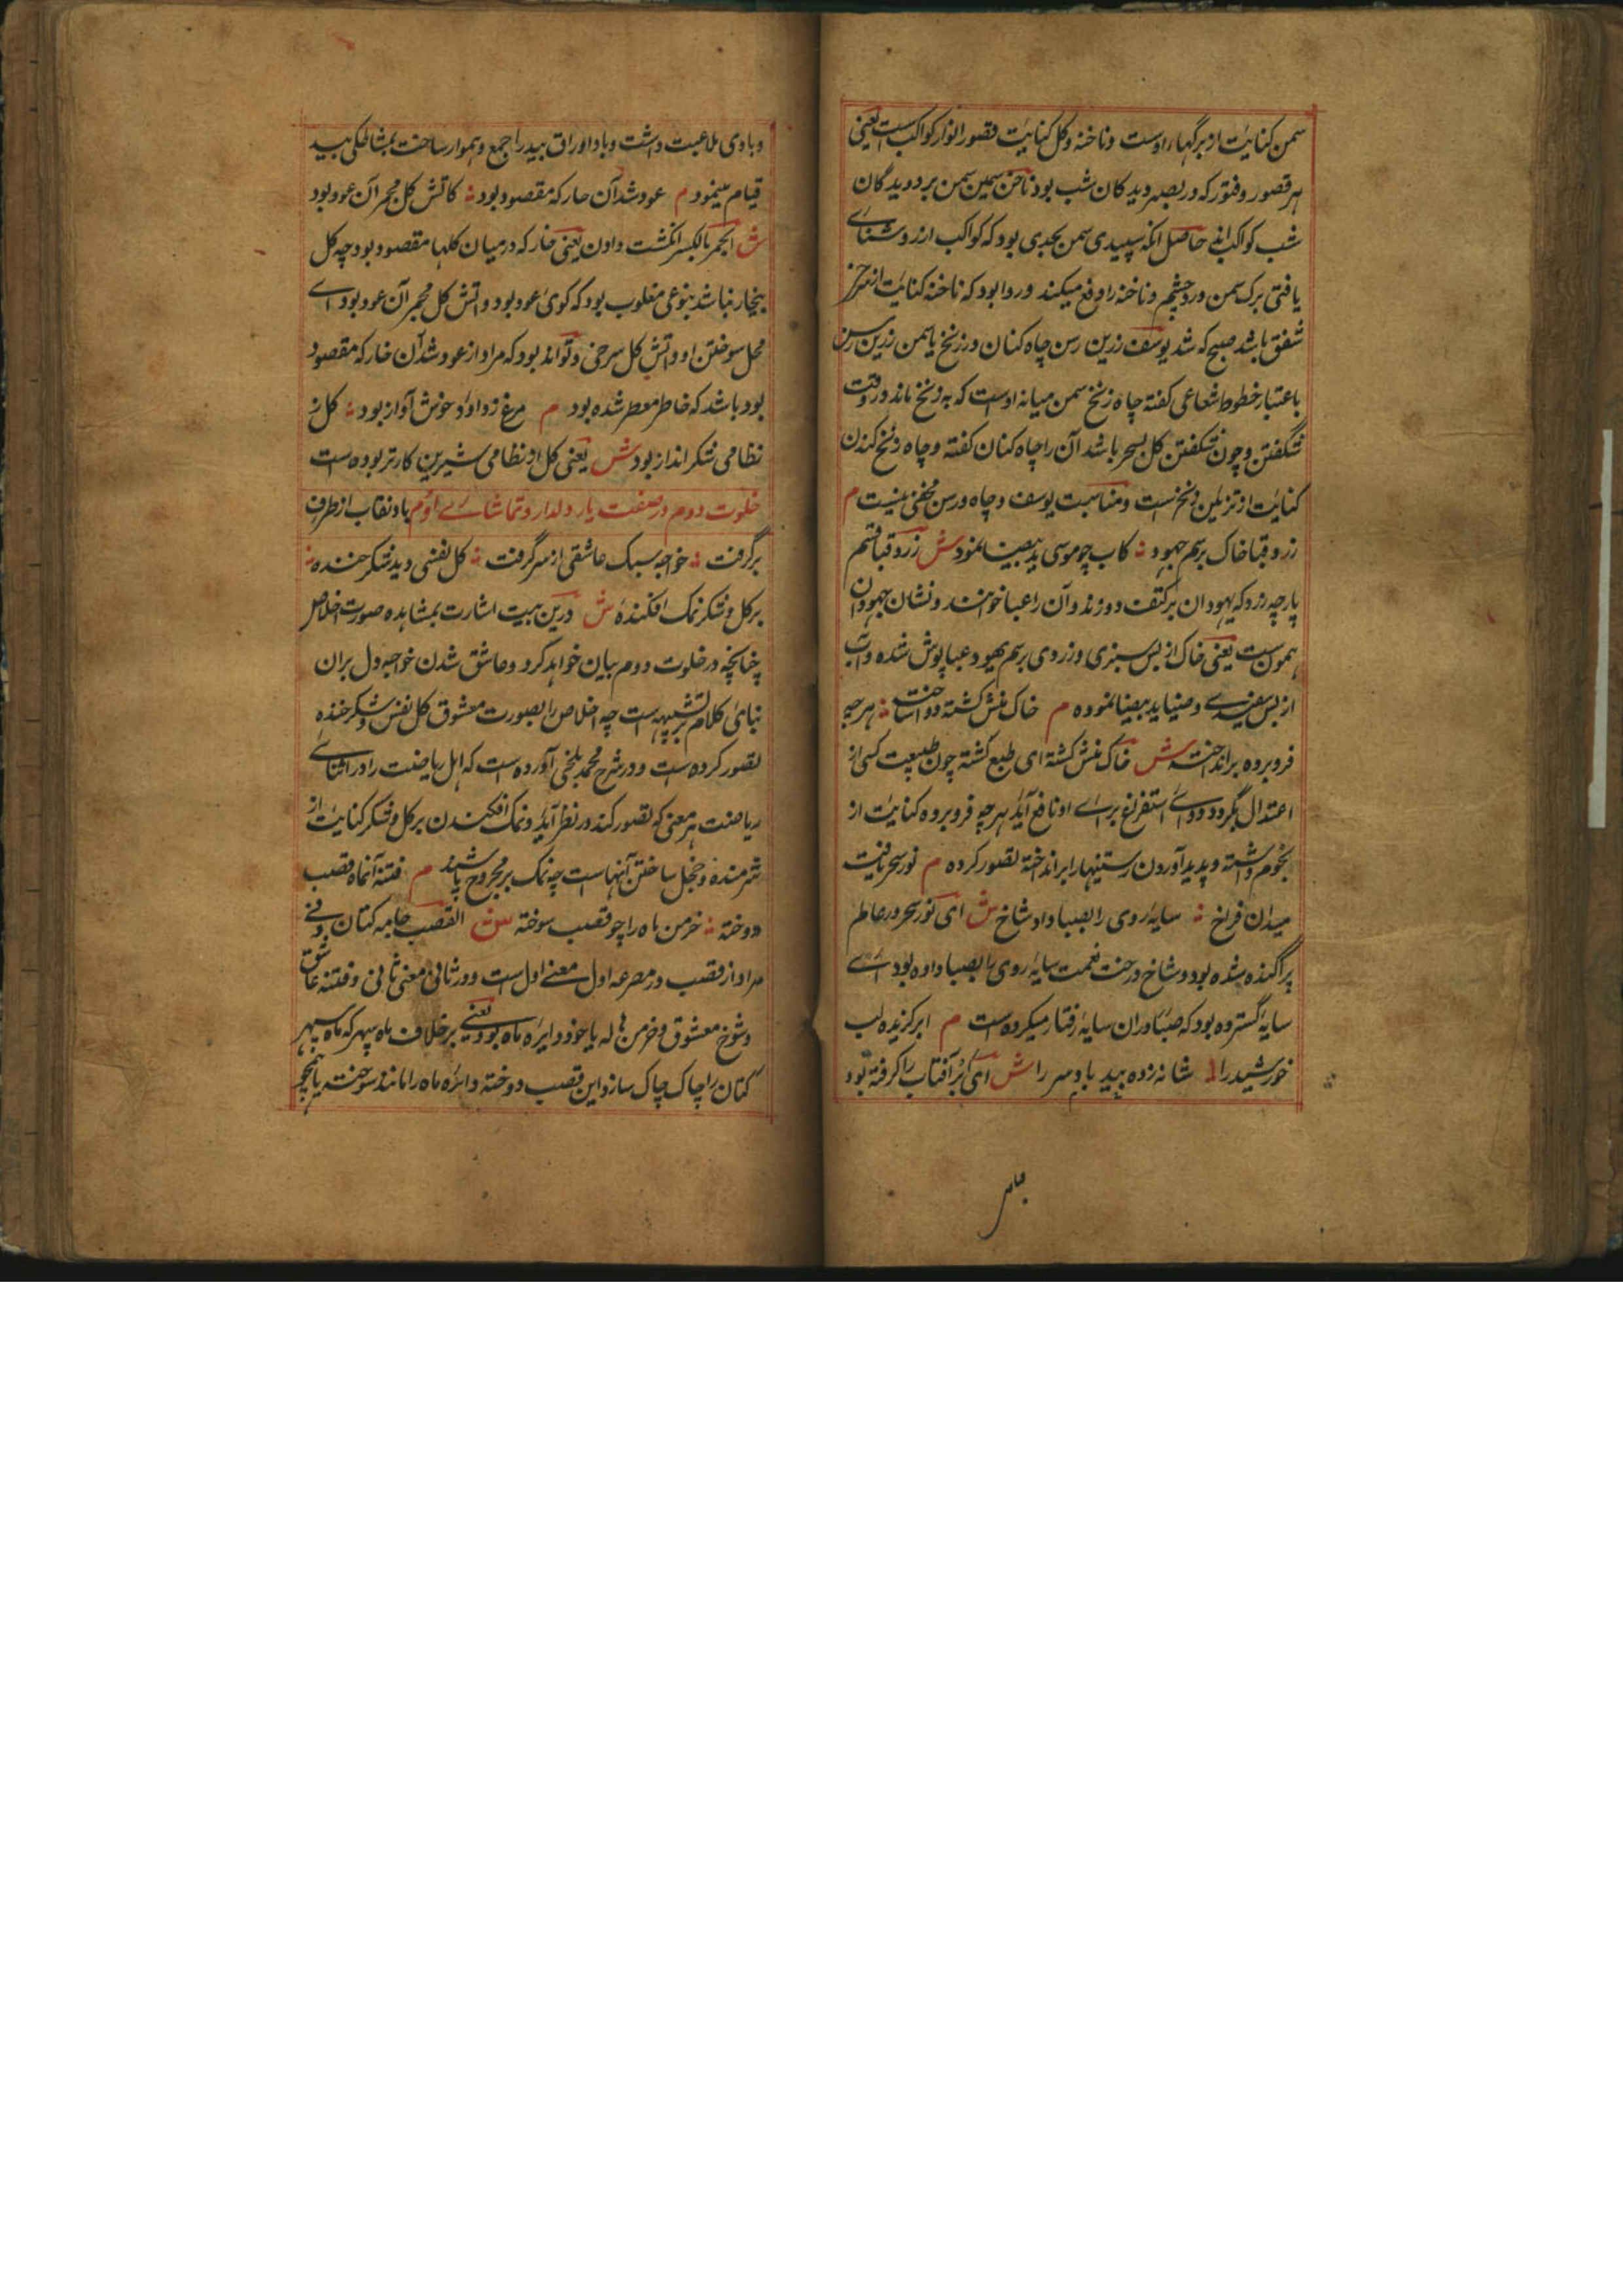 سمن کنایت از برگهاء اوست و ناخنه و کل کنایت قصور انوار کواکبست یعنی
هر قصور و فتور که در بصر دیدکان شب بود ناخن سیمین سمن بر دویدگان
شب کواکب انے حاصل انکه سپیدی سمن بحدی بود که کواکب ازو روشنائے
یافتی برک سمن درد چشم و ناخنه را دفع میکند و روا بود که ناخنه کنایت از سرخی
شفق باشد صبح که شد یوسف زرین رسن چاه کنان در زنخ یاسمن زرین رسن
باعتبار خطوط شعاعی کفته چاه زنخ سمن میانه اوست که به زنخ ماند در وقت
شکفتن و چون شکفتن کل بسحر باشد آن را چاه کنان کفته و چاه زنخ کندن
کنایت از تزئین زنخست و مناسبت یوسف و چاه و رسن مخفی نیست م
زرد قبا خاک برسم جهود کاب چو موسی ید بیضا نمود ش زرد قبا قسم
پارچه زرد که یهودان بر کتف دوزند و آن را عبا خوانند و نشان جهودان
همونست یعنی خاک از بس سبزی و زردی برسم یهود عبا پوش شده و آب
از بس سفیدے و ضیا ید بیضا نموده م خاک منش کشته دوا ساخت هر چه
فرو برده بر انداخت ش خاک منش کشته ای طبع کشته چون طبیعت کسی از
اعتدال بگردد دوائے استفراغ برائے او نافع آید هر چه فرو برده کنایت از
تخوم داشته و پدید آوردن رستنیها را بر انداخته تصور کرده م نور سحر یافت
میدان فراخ سایه روی را بصبا داد شاخ ش ای نور سحر در عالم
پراکنده شده بود و شاخ درخت نعمت سایه روی را بصبا داده بود اے
سایه گسترده بود که صبا دران سایه رفتار میکرده است م ابر کزیده لب
خورشید را شانه زده بید باد سر را ش ای ابر آفتاب را کرفته بود
و باوی ملاعبت داشت و باد اوراق بید را جمع و هموار ساخت بمشاطکی بید
قیام مینمود م عود شد آن خار که مقصود بود کاتش کل مجمر آن عود بود
ش المجمر بالکسر انکشت دان یعنی خار که در میان کلها مقصود بود چه کل
بیخار نباشد بنوعی مغلوب بود که کوئی عود بود و اتش کل مجمر آن عود بود اے
محل سوختن او و اتش کل سرخی و تواند بود که مراد از عود شد آن خار که مقصود
بود باشد که خاطر معطر شده بود م مرغ ز داود خوش آواز بود کل ز
نظامی شکر انداز بود ش یعنی کل از نظامی شیرین کار تر بوده است
خلوت دوم در صفت یار دلدار و تماشائے او م باد نقاب از طرف
برگرفت خواجه سبک عاشقی از سر گرفت کل نفسی دید شکر خنده
بر کل و شکر نمک افکنده ش درین بیت اشارت بمشاهده صورت اخلاص
چنانچه در خلوت دوم بیان خواهد کرد و عاشق شدن خواجه دل بران
بنائے کلام بر تشبیه است چه اخلاص را بصورت معشوق کل نفس و شکر خنده
تصور کرده است و در شرح محمد بلخی آورده است که اهل ریاضت را در اثنائے
ریاضت هر معنی که تصور کند در نظر آید و نمک افکندن بر کل و شکر کنایت از
شرمنده و خجل ساختن آنهاست چه نمک بر مجروح پاشند م فتنه آن ماه قصب
دوخته خرمن ماه را چو قصب سوخته ش القصب جامه کتان و نے
مراد از قصب در مصرعه اول معنے اول است و در ثانی معنی ثانی و فتنه عاشق
و شوخ معشوق و خرمن هاله یا خود دایره ماه بود یعنی بر خلاف ماه سپهر که ماه سپهر
کتان را چاک چاک سازد این قصب دوخته دائره ماه را مانند سوخت یا همچو